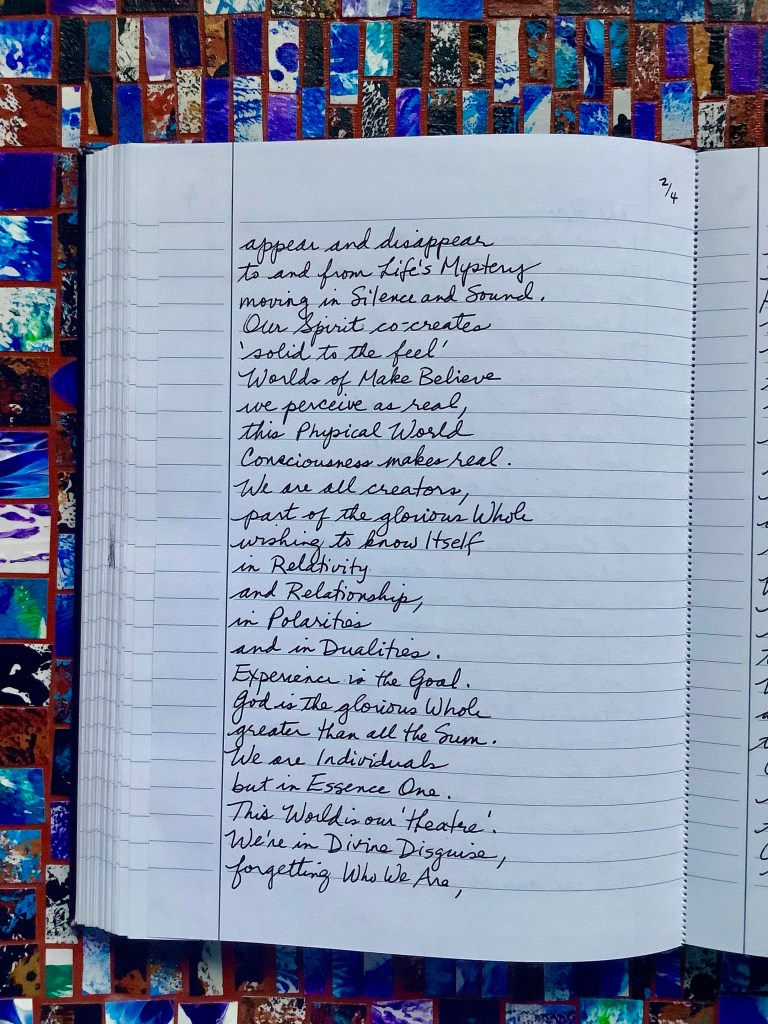 2/4
appear and disappear
to and from Life's Mystery
moving in Silence and Sound.
Our Spirit co-creates
'solid to the feel'
Worlds of Make Believe
we perceive as real,
this Physical World
Consciousness makes real.
We are all creators,
part of the glorious Whole
wishing to know Itself
in Relativity
and Relationship,
in Polarities
and in Dualities.
Experience is the Goal.
God is the glorious Whole
greater than all the Sum.
We are Individuals
but in Essence One.
This World is our 'theatre'.
We're in Divine Disguise,
forgetting Who We Are,